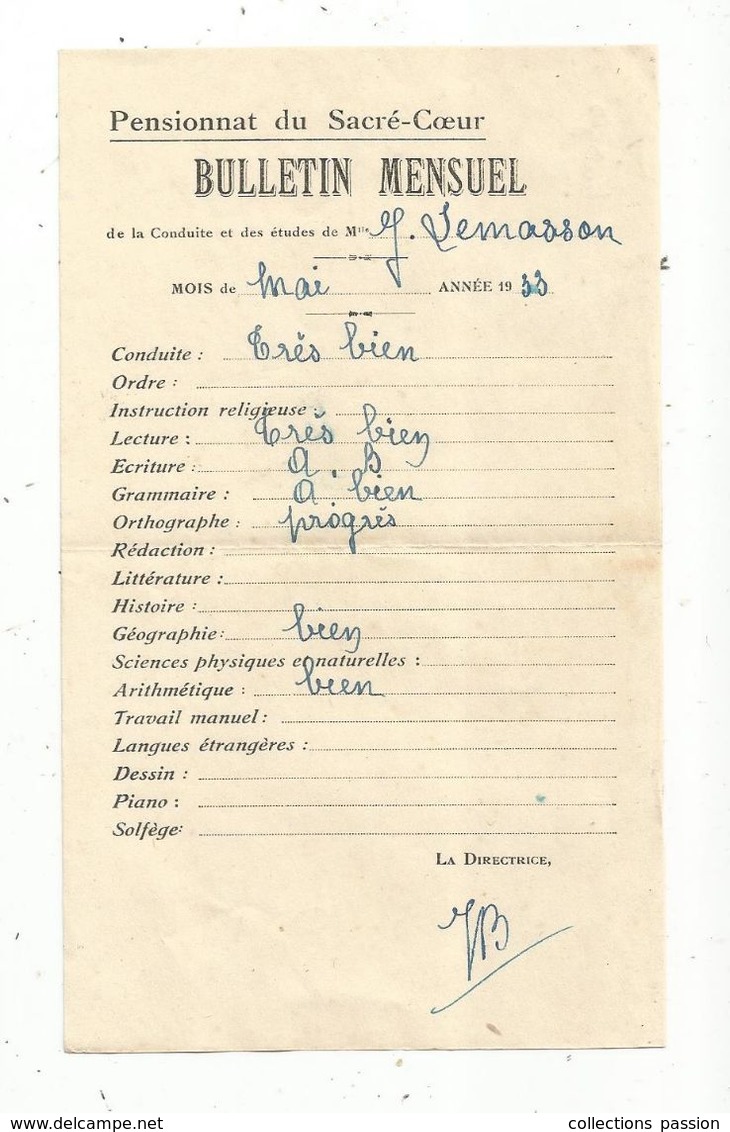 Pensionnat du Sacré-Cœur
BULLETIN MENSUEL
de la Conduite et des études de Mlle Y. Lemasson
MOIS de Mai ANNÉE 1933
Conduite : Très bien
Ordre :
Instruction religieuse :
Lecture : Très bien
Ecriture : A. B
Grammaire : A. bien
Orthographe : progrès
Rédaction :
Littérature :
Histoire :
Géographie: bien
Sciences physiques et naturelles :
Arithmétique : bien
Travail manuel :
Langues étrangères :
Dessin :
Piano :
Solfège:
LA DIRECTRICE,
JB
collections passion